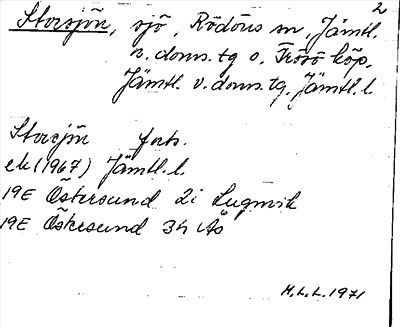 2
Storsjön, sjö, Rödöns sn, Jämtl.
n. doms. tg o. Frösö köp.
Jämtl. v. doms. tg. Jämtl. l.
Storsjön forts.
ek (1967) Jämtl. l.
19E Östersund 2i Lugnvik
19E Östersund 3h Ås
M.L.L. 1971